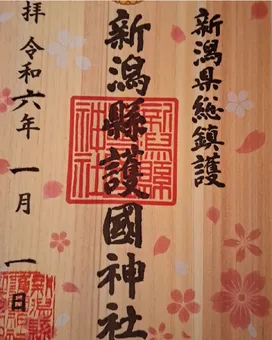 新潟県総鎮護
新潟縣護國神社
拝 令和六年 一月 一日
新潟縣
護國
神社